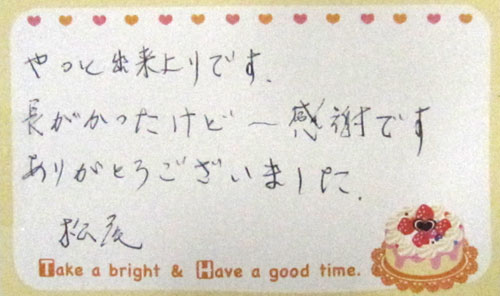 やっと出来上りです.
長がかったけど〜感謝です
ありがとうございました.
松尾
Take a bright & Have a good time.